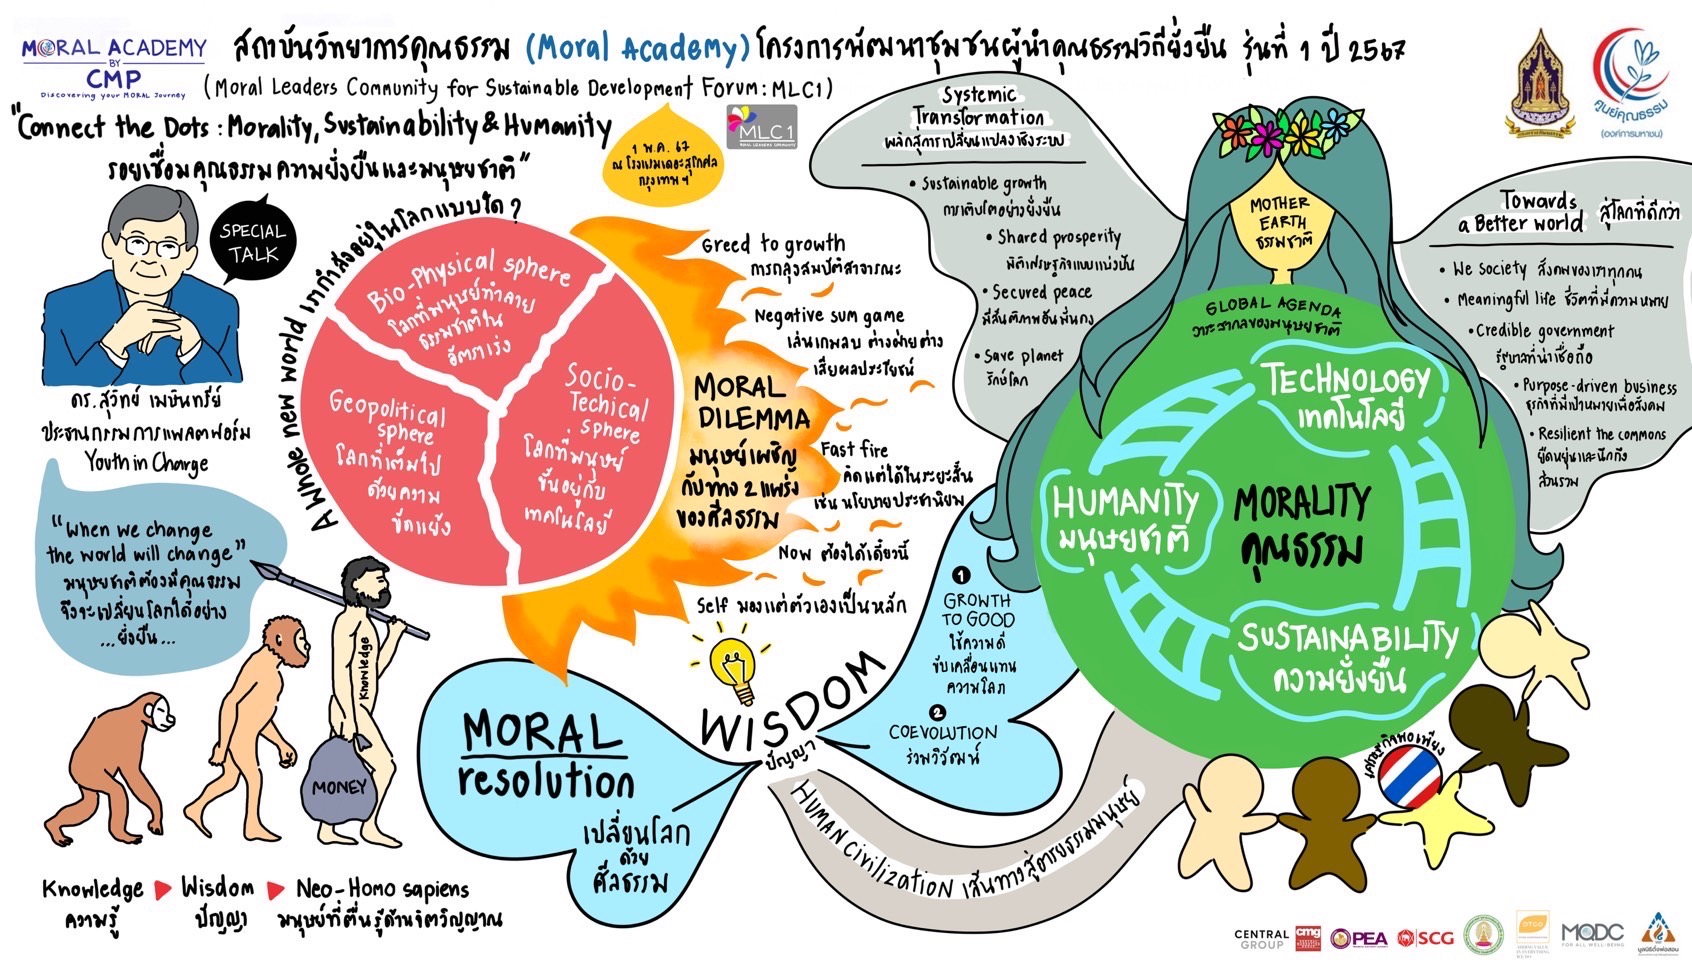 MORAL ACADEMY
BY
CMP
Discovering your MORAL Journey
สถาบันวิทยาการคุณธรรม (Moral Academy) โครงการพัฒนาชุมชนผู้นำคุณธรรมวิถียั่งยืน รุ่นที่ 1 ปี 2567
(Moral Leaders Community for Sustainable Development Forum: MLC1)
"Connect the Dots: Morality, Sustainability & Humanity
ร้อยเชื่อมคุณธรรม ความยั่งยืนและมนุษยชาติ"
1 พ.ค. 67
ณ โรงแรมเดอะสุโกศล
กรุงเทพฯ
MLC1
MORAL LEADERS COMMUNITY
ศูนย์คุณธรรม
(องค์การมหาชน)
SPECIAL
TALK
ดร.สุวิทย์ เมษินทรีย์
ประธานกรรมการแพลตฟอร์ม
Youth in Charge
"When we change
the world will change"
มนุษยชาติต้องมีคุณธรรม
จึงจะเปลี่ยนโลกได้อย่าง
...ยั่งยืน...
Knowledge
MONEY
Knowledge ▶ Wisdom ▶ Neo-Homo sapiens
ความรู้ ปัญญา มนุษย์ที่ตื่นรู้ด้านจิตวิญญาณ
A Whole new world เรากำลังอยู่ในโลกแบบใด?
Bio-Physical sphere
โลกที่มนุษย์ทำลาย
ธรรมชาติใน
อัตราเร่ง
Geopolitical
sphere
โลกที่เต็มไป
ด้วยความ
ขัดแย้ง
Socio-
Techical
sphere
โลกที่มนุษย์
ขึ้นอยู่กับ
เทคโนโลยี
MORAL
DILEMMA
มนุษย์เผชิญ
กับทาง 2 แพร่ง
ของศีลธรรม
Greed to growth
การถลุงสมบัติสาธารณะ
Negative sum game
เล่นเกมลบ ต่างฝ่ายต่าง
เสียผลประโยชน์
Fast fire
คิดแต่ได้ในระยะสั้น
เช่น นโยบายประชานิยม
Now ต้องได้เดี๋ยวนี้
Self มองแต่ตัวเองเป็นหลัก
MORAL
resolution
เปลี่ยนโลก
ด้วย
ศีลธรรม
WISDOM
ปัญญา
1
GROWTH
TO GOOD
ใช้ความดี
ขับเคลื่อนแทน
ความโลภ
2
COEVOLUTION
ร่วมวิวัฒน์
HUMAN Civilization เส้นทางสู่อารยธรรมมนุษย์
Systemic
Transformation
พลิกสู่การเปลี่ยนแปลงเชิงระบบ
• Sustainable growth
การเติบโตอย่างยั่งยืน
• Shared prosperity
มิติเศรษฐกิจแบบแบ่งปัน
• Secured peace
มีสันติภาพอันมั่นคง
• Save planet
รักษ์โลก
MOTHER
EARTH
ธรรมชาติ
GLOBAL AGENDA
วาระสากลของมนุษยชาติ
TECHNOLOGY
เทคโนโลยี
HUMANITY
มนุษยชาติ
MORALITY
คุณธรรม
SUSTAINABILITY
ความยั่งยืน
Towards
a Better world สู่โลกที่ดีกว่า
• We society สังคมของเราทุกคน
• Meaningful life ชีวิตที่มีความหมาย
• Credible government
รัฐบาลที่น่าเชื่อถือ
• Purpose-driven business
ธุรกิจที่มีเป้าหมายเพื่อสังคม
• Resilient the commons
ยืดหยุ่นและนึกถึง
ส่วนรวม
เศรษฐกิจพอเพียง
CENTRAL
GROUP
cmg
PEA
SCG
DTGO
MQDC
FOR ALL WELL-BEING